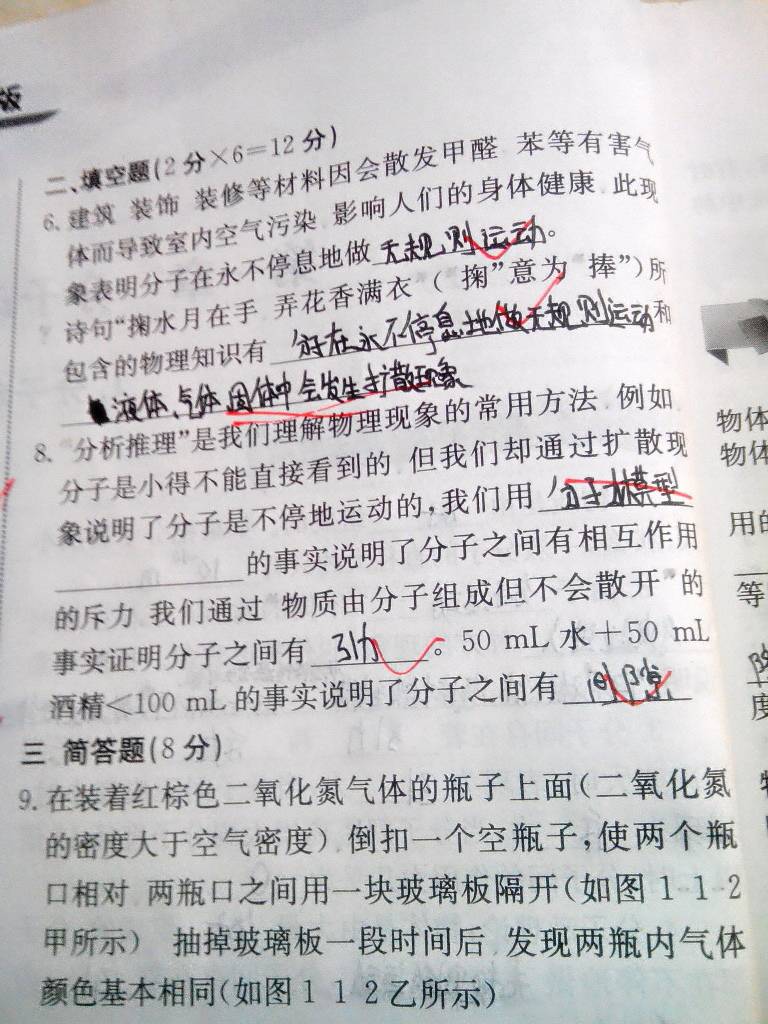 版
二、填空题(2分×6=12分)
6. 建筑 装饰 装修等材料因会散发甲醛 苯等有害气
体而导致室内空气污染 影响人们的身体健康 此现
象表明分子在永不停息地做无规则运动。
诗句“掬水月在手 弄花香满衣 ( 掬”意为 捧”)所
包含的物理知识有 分子在永不停息地做无规则运动和
液体、气体 固体中会发生扩散现象
8. “分析推理”是我们理解物理现象的常用方法 例如
分子是小得不能直接看到的 但我们却通过扩散现
象说明了分子是不停地运动的,我们用 分子模型
的事实说明了分子之间有相互作用
的斥力 我们通过 物质由分子组成但不会散开”的
事实证明分子之间有 引力 。50 mL 水+50 mL
酒精<100 mL 的事实说明了分子之间有 间隙
三 简答题(8分)
9. 在装着红棕色二氧化氮气体的瓶子上面(二氧化氮
的密度大于空气密度) 倒扣一个空瓶子,使两个瓶
口相对 两瓶口之间用一块玻璃板隔开(如图 1 1 2
甲所示) 抽掉玻璃板一段时间后 发现两瓶内气体
颜色基本相同(如图 1 1 2乙所示)
物体
物体
用的
等
度